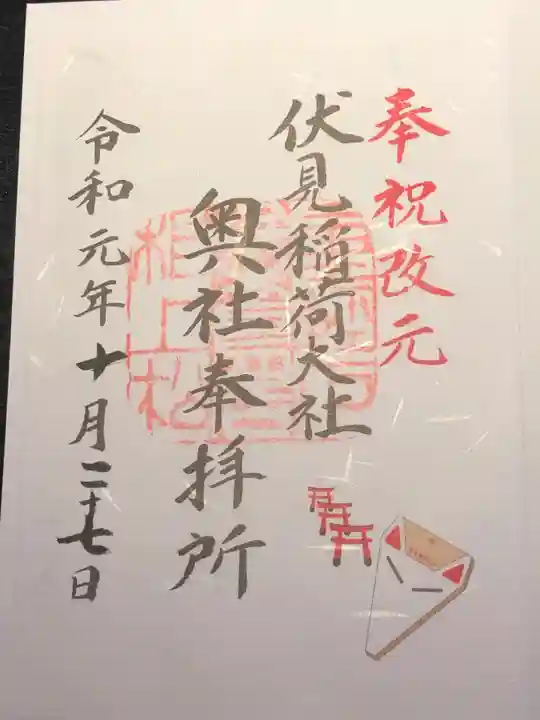 奉祝改元
伏見稲荷大社
奥社奉拝所
令和元年十月二十七日